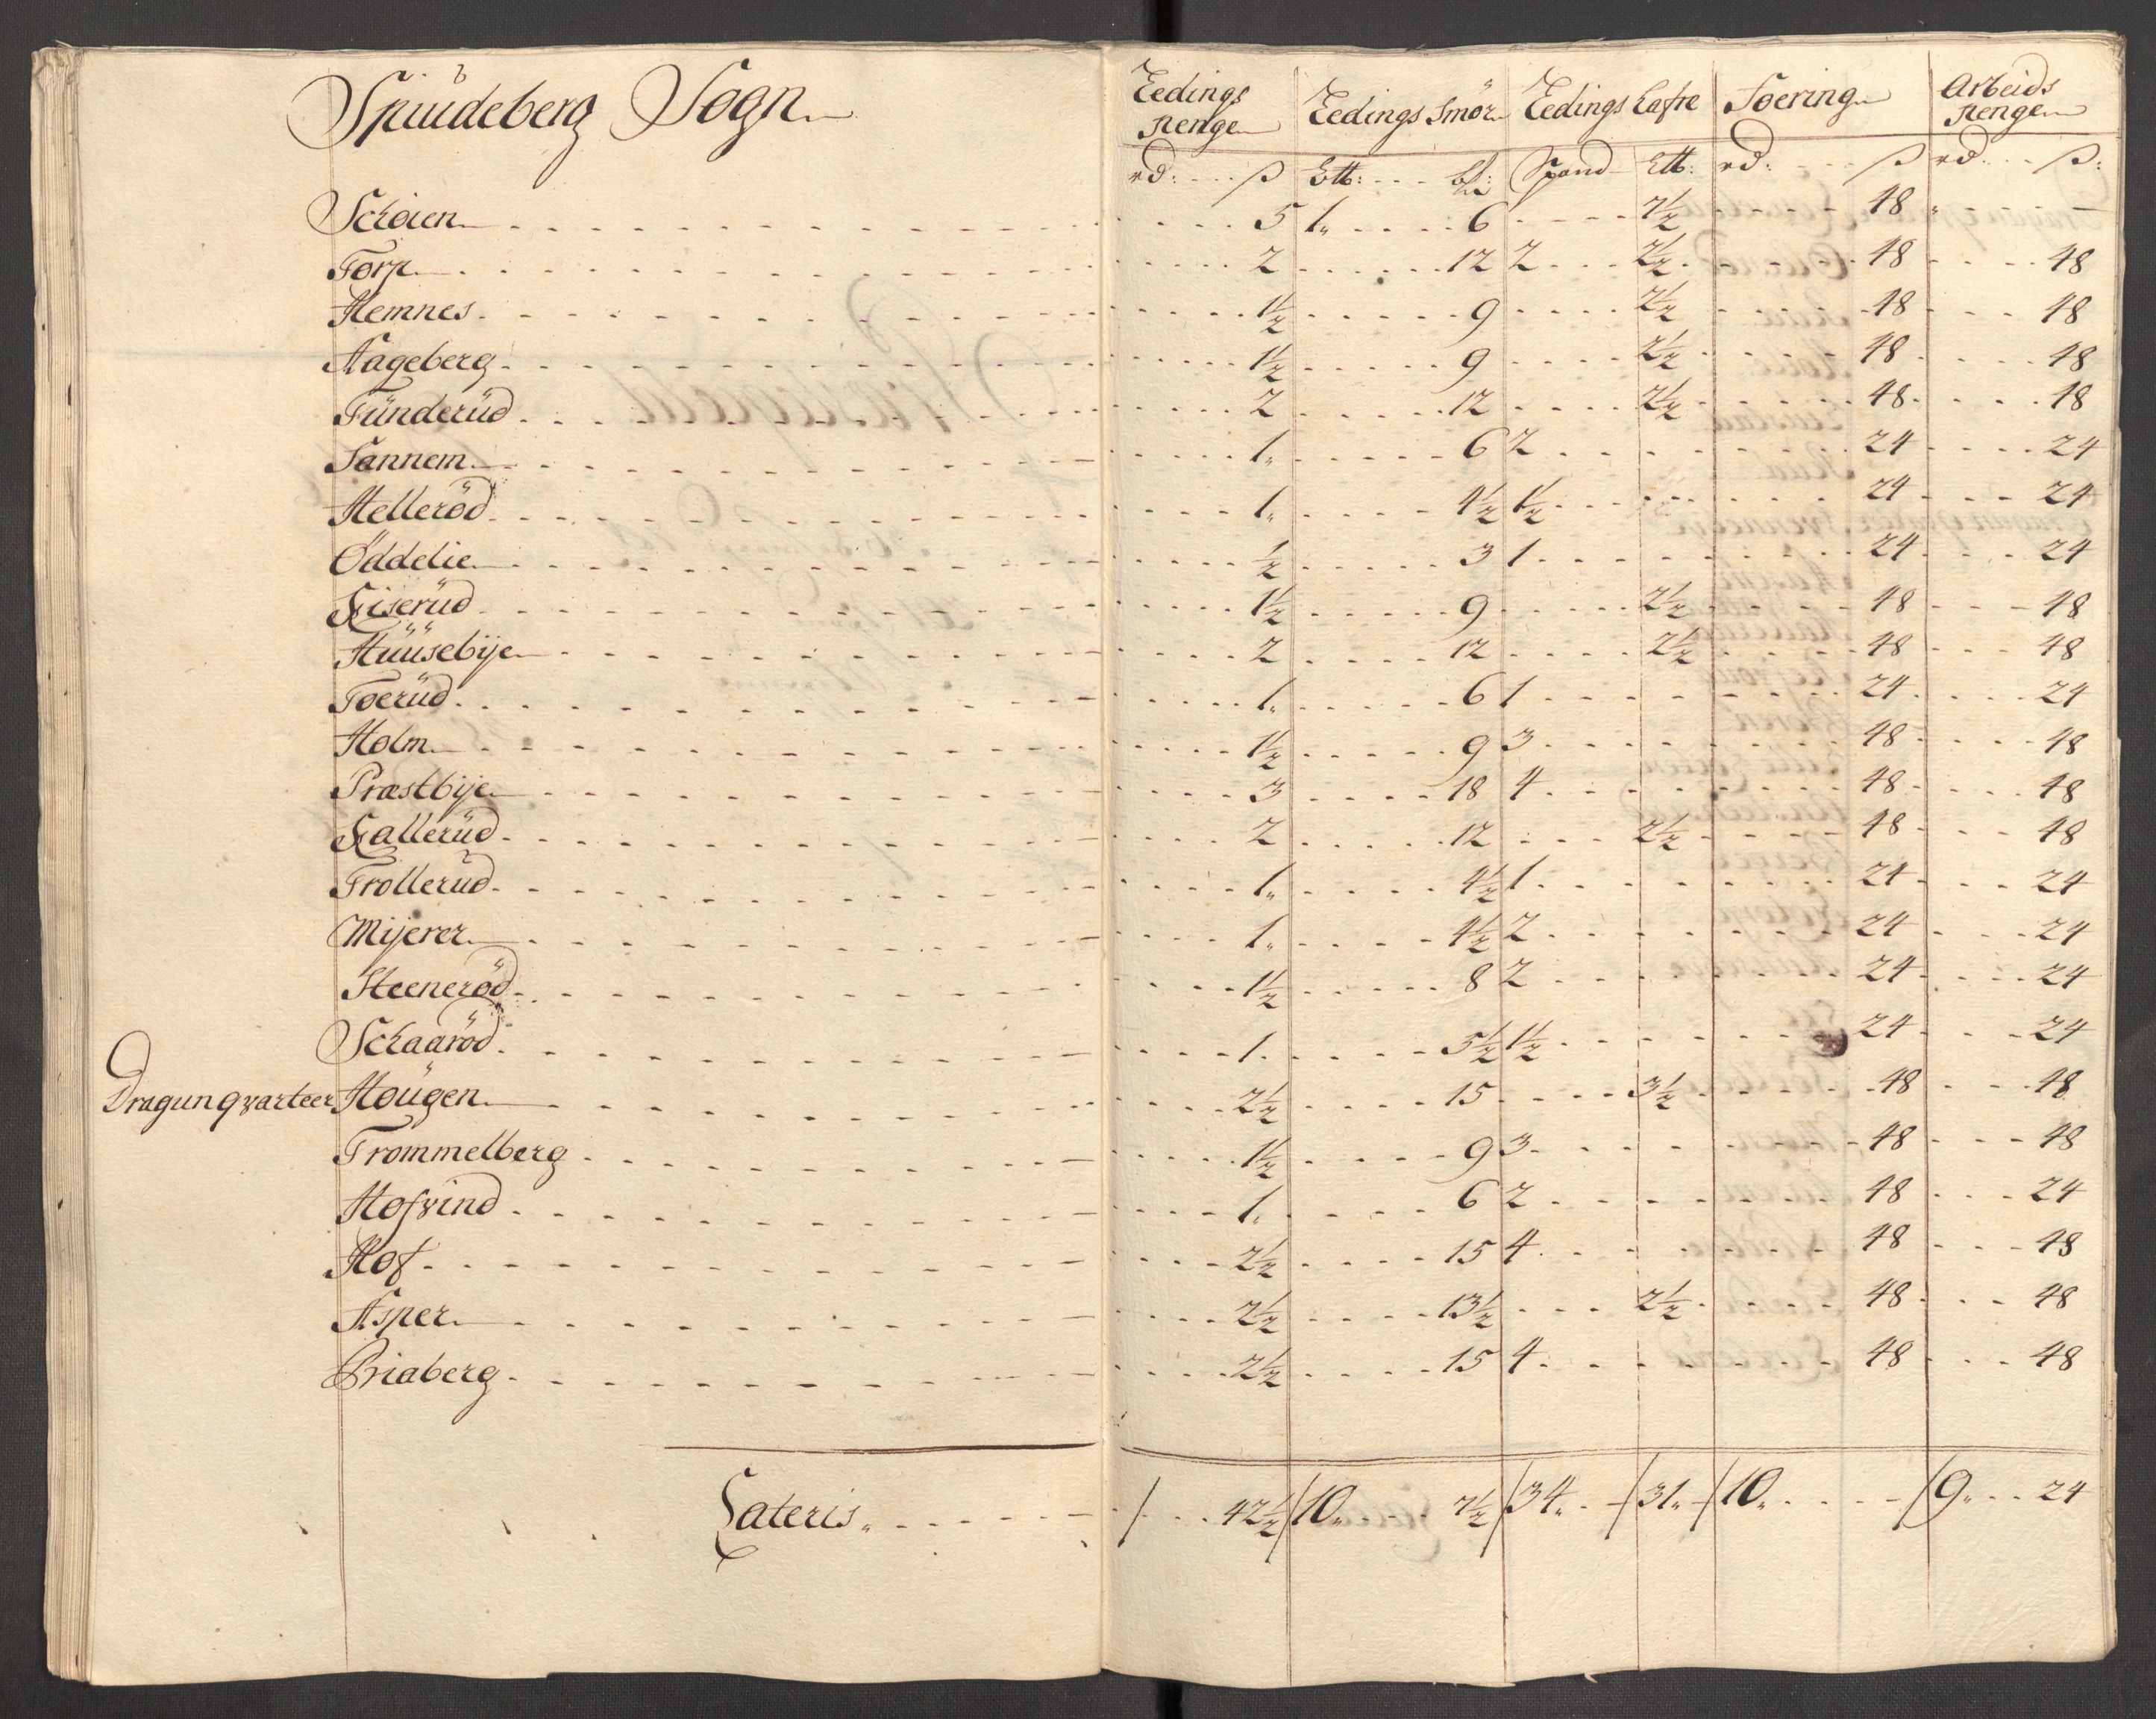 Spüüdeberg Sogn
Leedings Penge | Leedings Smör | Leedings Hafre | Foering | Arbeids Penge
rd: ß | Ltt: bl: | Spand Ltt: | rd: ß | rd: ß:
Schöien 5 1„ 6 7½ 48 „ —
Torp 2 12 2 2½ 48 48
Hemnes 1½ 9 2½ 48 48
Hageberg 1½ 9 2½ 48 48
Tünderüd 2 12 2½ 48 48
Sannem 1„ 6 2 24 24
Helleröd 1„ 4½ 1½ 24 24
Oddelie ½ 3 1 24 24
Kiserüd 1½ 9 2½ 48 48
Hüüsebije 2 12 2½ 48 48
Toerüd 1„ 6 1 24 24
Holm 1½ 9 3 48 48
Præstbije 3 18 4 48 48
Kallerüd 2 12 2½ 48 48
Trollerüd 1„ 4½ 1 24 24
Mijerer 1„ 4½ 2 24 24
Steeneröd 1½ 8 2 24 24
Schaaröd 1 5½ 1½ 24 24
Dragunqvarteer Hougen 2½ 15 3½ 48 48
Trommelberg 1½ 9 3 48 48
Hofvind 1„ 6 2 48 24
Hof 2½ 15 4 48 48
Asper 2½ 13½ 2½ 48 48
Briaberg 2½ 15 4 48 48
Lateris„ 42½ 10„ 7½ 34„ 31„ 10„ — 9„ 24